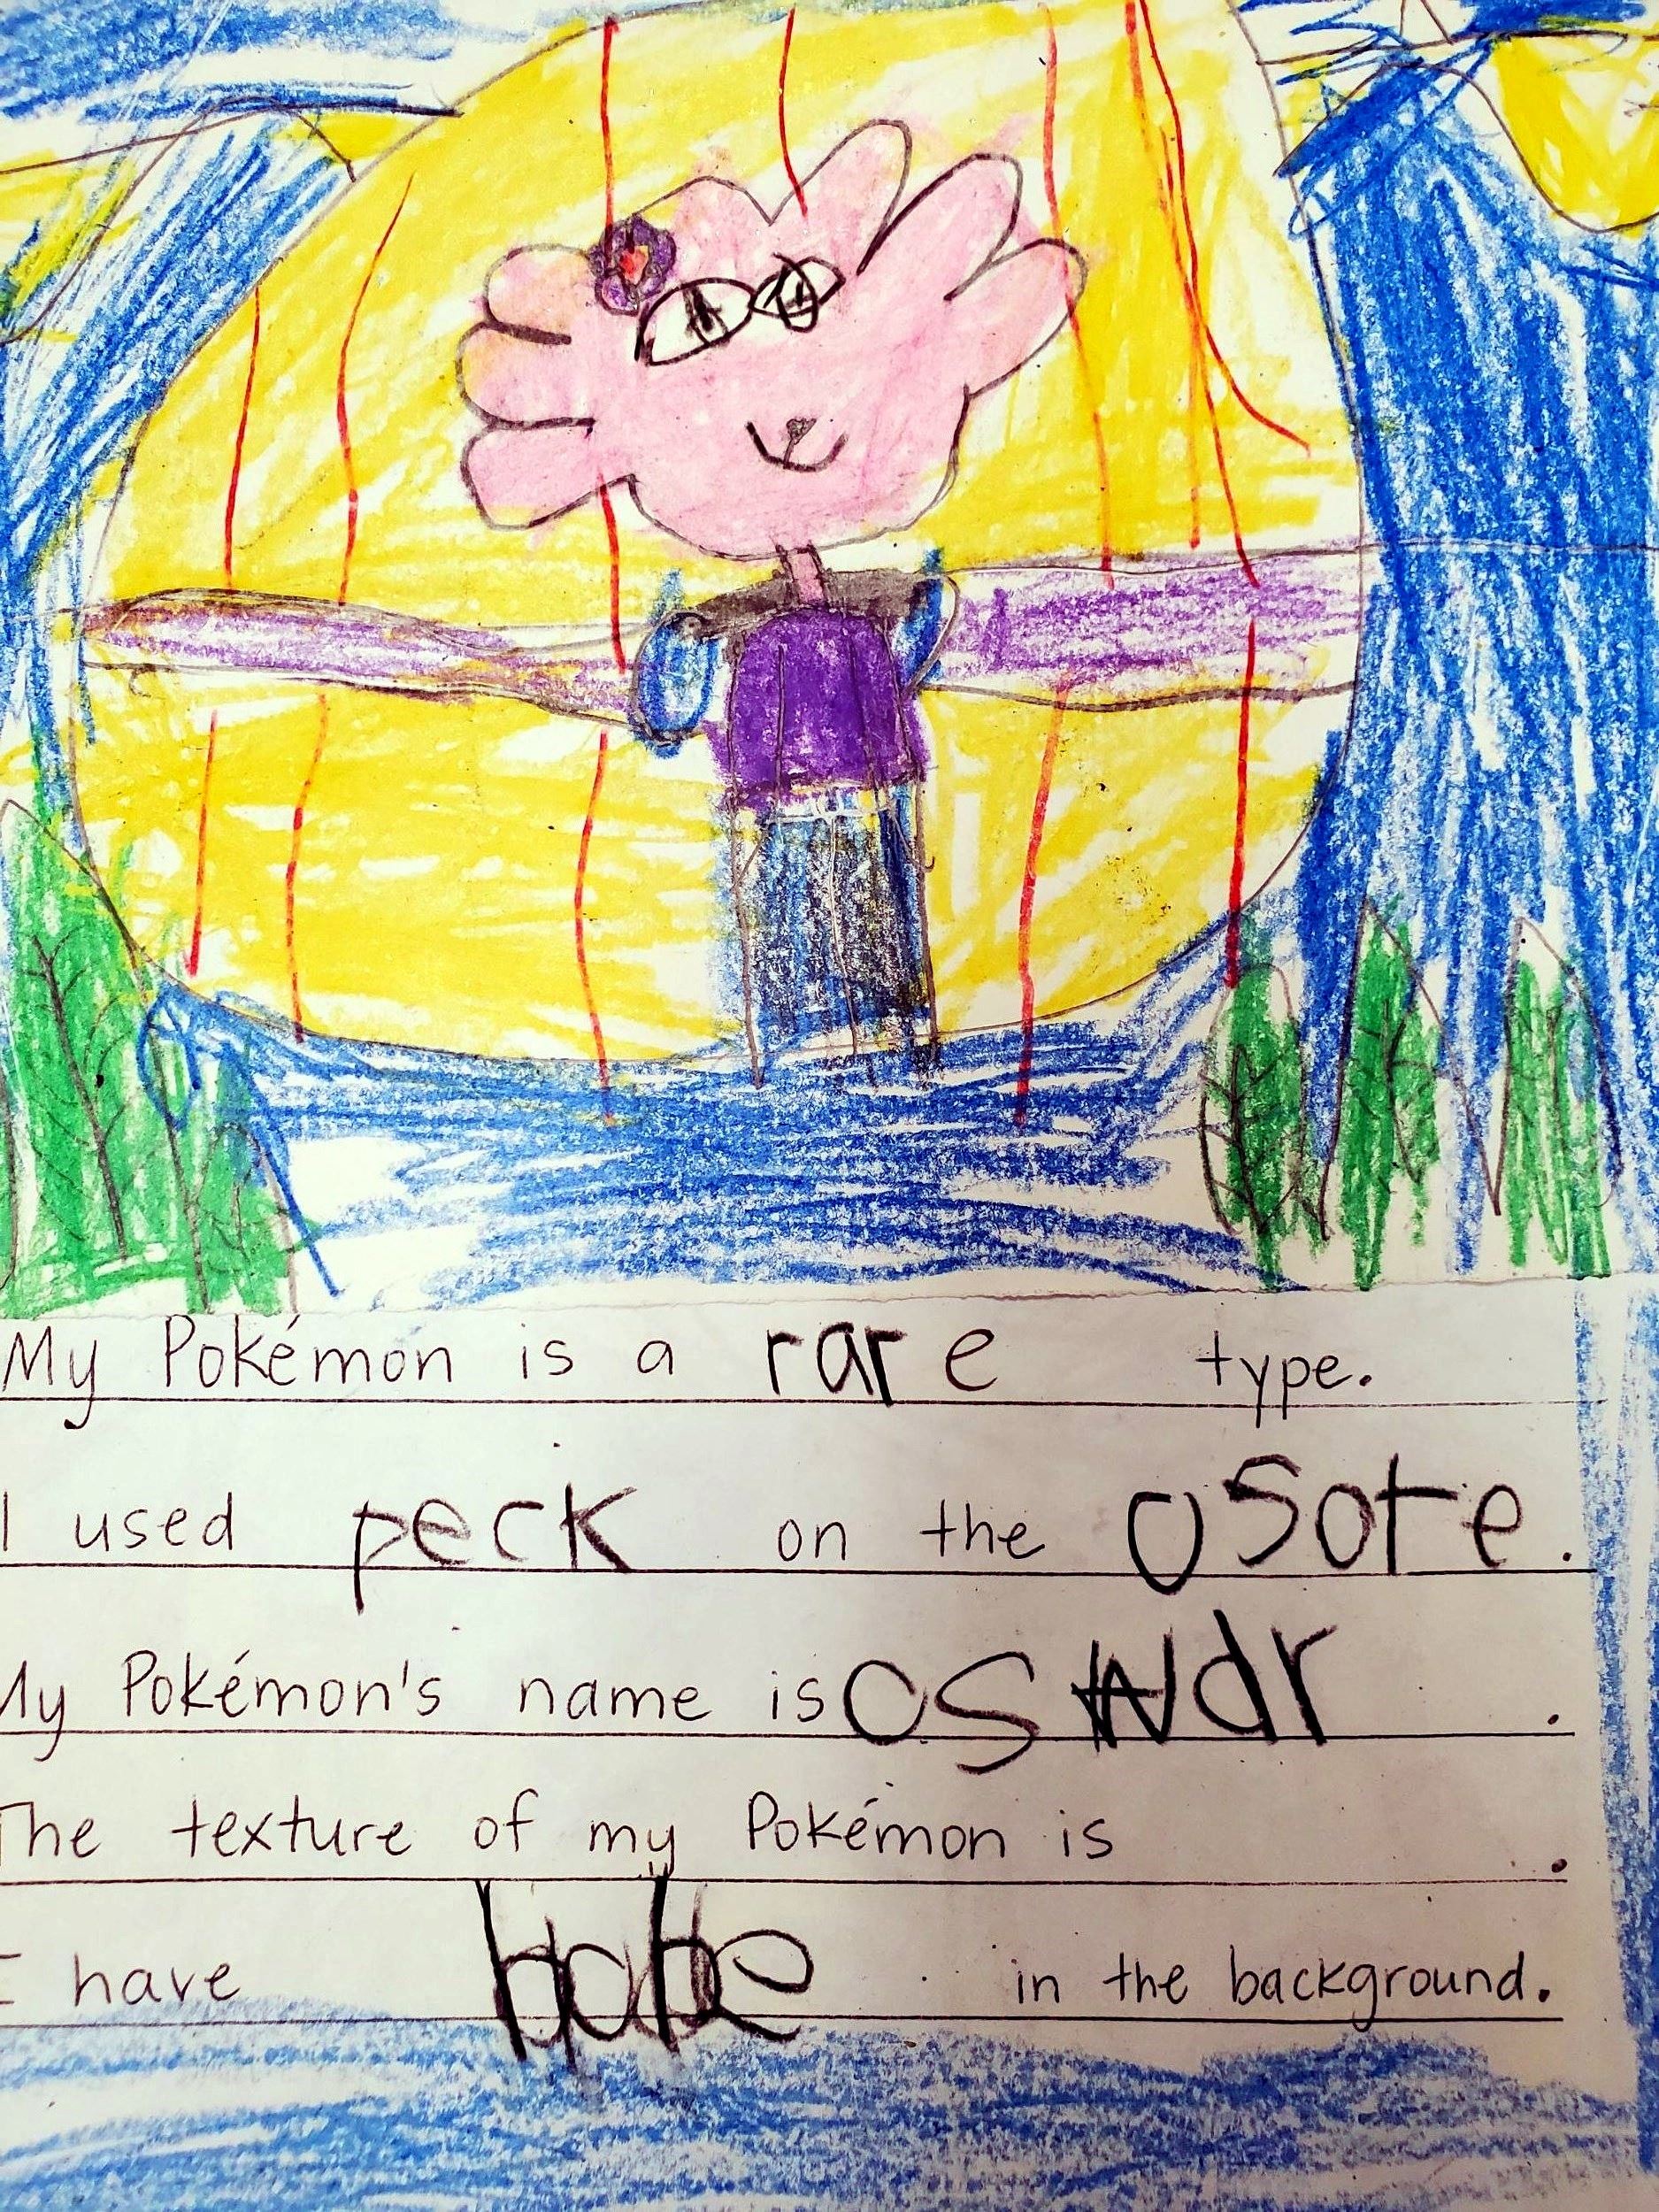 My Pokémon is a rare type.
I used peck on the osote.
My Pokémon's name is
The texture of my Pokémon is .
I have in the background.